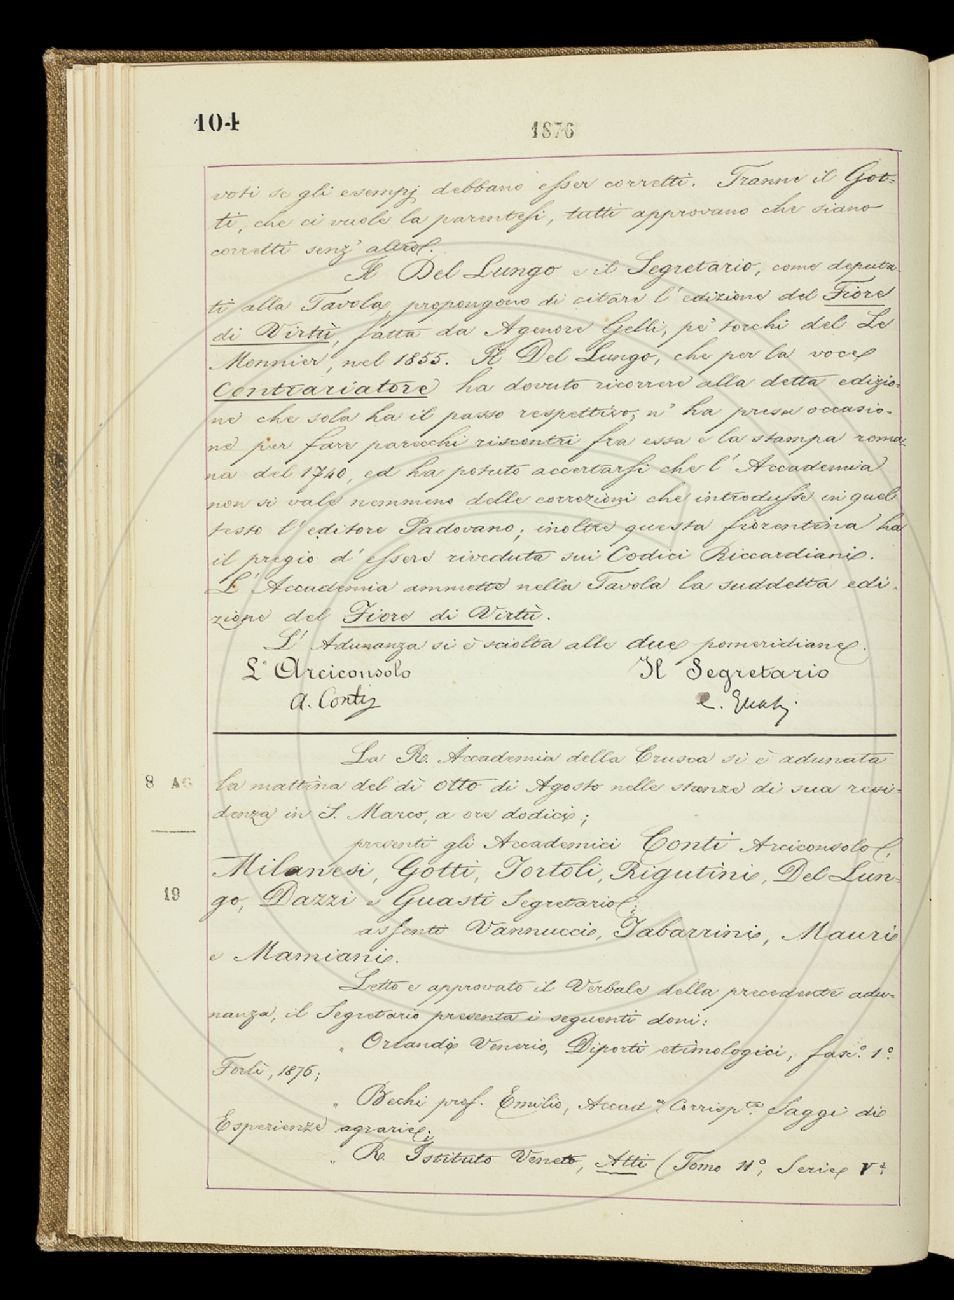 104
1876
voti se gli esempj debbano esser corretti. Tranne il Got-
ti, che ci vuole la parentesi, tutti approvano che siano
corretti senz' altro.
Il Del Lungo e il Segretario, come deputa-
ti alla Tavola, propongono di citare l'edizione del Fiore
di Virtù, fatta da Agenore Gelli, pe' torchi del Le
Monnier, nel 1855. Il Del Lungo, che per la voce
Contrariatore ha dovuto ricorrere alla detta edizio-
ne che sola ha il passo respettivo, n' ha preso occasio-
ne per fare parecchi riscontri fra essa e la stampa roma-
na del 1740, ed ha potuto accertarsi che l' Accademia
non si vale nemmeno delle correzioni che introdusse in quel
testo l' editore Padovano; inoltre questa fiorentina ha
il pregio d' essere riveduta sui Codici Riccardiani.
L' Accademia ammette nella Tavola la suddetta edi-
zione del Fiore di Virtù.
L' Adunanza si è sciolta alle due pomeridiane.
L' Arciconsolo Il Segretario
A. Conti C. Guasti
La R. Accademia della Crusca si è adunata
8 AG la mattina del dì otto di Agosto nelle stanze di sua resi-
denza in S. Marco, a ore dodici;
presenti gli Accademici Conti Arciconsolo,
Milanesi, Gotti, Tortoli, Rigutini, Del Lun-
19 go, Dazzi e Guasti Segretario;
assenti Vannucci, Tabarrini, Mauri
e Mamiani.
Letto e approvato il Verbale della precedente adu-
nanza, il Segretario presenta i seguenti doni:
" Orlandi Venerio, Diporti etimologici, fasc.º 1º
Forlì, 1876;
" Bechi prof. Emilio, Accad.co Corrisp.te Saggi di
Esperienze agrarie;
" R. Istituto Veneto, Atti (Tomo IIº, Serie Vª